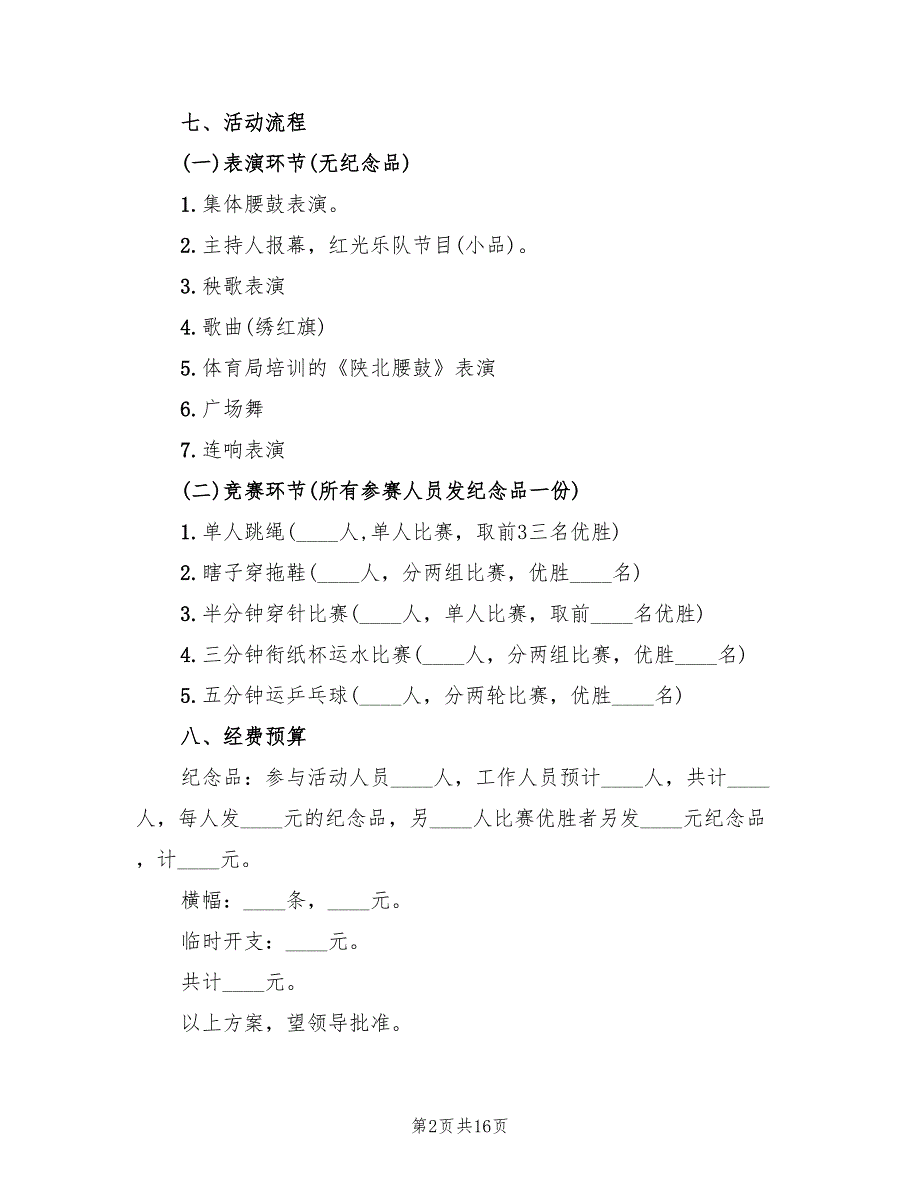 七、活动流程
(一)表演环节(无纪念品)
1.集体腰鼓表演。
2.主持人报幕，红光乐队节目(小品)。
3.秧歌表演
4.歌曲(绣红旗)
5.体育局培训的《陕北腰鼓》表演
6.广场舞
7.连响表演
(二)竞赛环节(所有参赛人员发纪念品一份)
1.单人跳绳(____人,单人比赛，取前3三名优胜)
2.瞎子穿拖鞋(____人，分两组比赛，优胜____名)
3.半分钟穿针比赛(____人，单人比赛，取前____名优胜)
4.三分钟衔纸杯运水比赛(____人，分两组比赛，优胜____名)
5.五分钟运乒乓球(____人，分两轮比赛，优胜____名)
八、经费预算
纪念品：参与活动人员____人，工作人员预计____人，共计____
人，每人发____元的纪念品，另____人比赛优胜者另发____元纪念品
，计____元。
横幅：____条，____元。
临时开支：____元。
共计____元。
以上方案，望领导批准。
第2页共16页